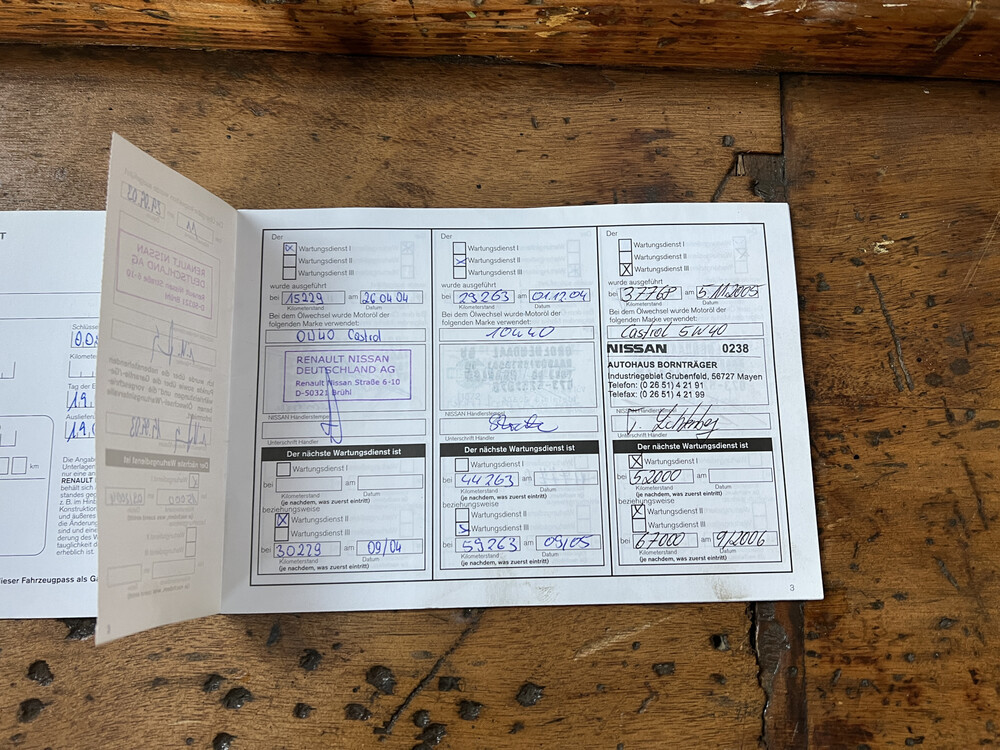 T
Schlüsse
Tag der E
19.
Auslieferu
19.0
km
Die Anga
Unterlagen
nur eine an
RENAULT
behält sich
standes geg
z. B. im Hinb
Konstruktion
und äußeres
die Änderung
sind und eine
derung des W
tauglichkeit d
erheblich ist.
dieser Fahrzeugpass als Ga
RENAULT NISSAN
DEUTSCHLAND AG
Renault Nissan Straße 6-10
D-50321 Brühl
Der nächste Wartungsdienst ist
Der
Wartungsdienst I
Wartungsdienst II
Wartungsdienst III
wurde ausgeführt
bei 15229 am 26.04.04
Kilometerstand Datum
Bei dem Ölwechsel wurde Motoröl der
folgenden Marke verwendet:
0W40 Castrol
RENAULT NISSAN
DEUTSCHLAND AG
Renault Nissan Straße 6-10
D-50321 Brühl
NISSAN Händlerstempel
Unterschrift Händler
Der nächste Wartungsdienst ist
Wartungsdienst I
bei am
Kilometerstand Datum
(je nachdem, was zuerst eintritt)
beziehungsweise
Wartungsdienst II
Wartungsdienst III
bei 30229 am 09/04
Kilometerstand Datum
(je nachdem, was zuerst eintritt)
Der
Wartungsdienst I
Wartungsdienst II
Wartungsdienst III
wurde ausgeführt
bei 29263 am 01.12.04
Kilometerstand Datum
Bei dem Ölwechsel wurde Motoröl der
folgenden Marke verwendet:
10W40
NISSAN Händlerstempel
Unterschrift Händler
Der nächste Wartungsdienst ist
Wartungsdienst I
bei 44263 am
Kilometerstand Datum
(je nachdem, was zuerst eintritt)
beziehungsweise
Wartungsdienst II
Wartungsdienst III
bei 59263 am 09/05
Kilometerstand Datum
(je nachdem, was zuerst eintritt)
Der
Wartungsdienst I
Wartungsdienst II
Wartungsdienst III
wurde ausgeführt
bei 37768 am 5.11.2005
Kilometerstand Datum
Bei dem Ölwechsel wurde Motoröl der
folgenden Marke verwendet:
Castrol 5W40
NISSAN 0238
AUTOHAUS BORNTRÄGER
Industriegebiet Grubenfeld, 56727 Mayen
Telefon: (0 26 51) 4 21 91
Telefax: (0 26 51) 4 21 99
NISSAN Händlerstempel
Unterschrift Händler
Der nächste Wartungsdienst ist
Wartungsdienst I
bei 52000 am
Kilometerstand Datum
(je nachdem, was zuerst eintritt)
beziehungsweise
Wartungsdienst II
Wartungsdienst III
bei 67000 am 9/2006
Kilometerstand Datum
(je nachdem, was zuerst eintritt)
3